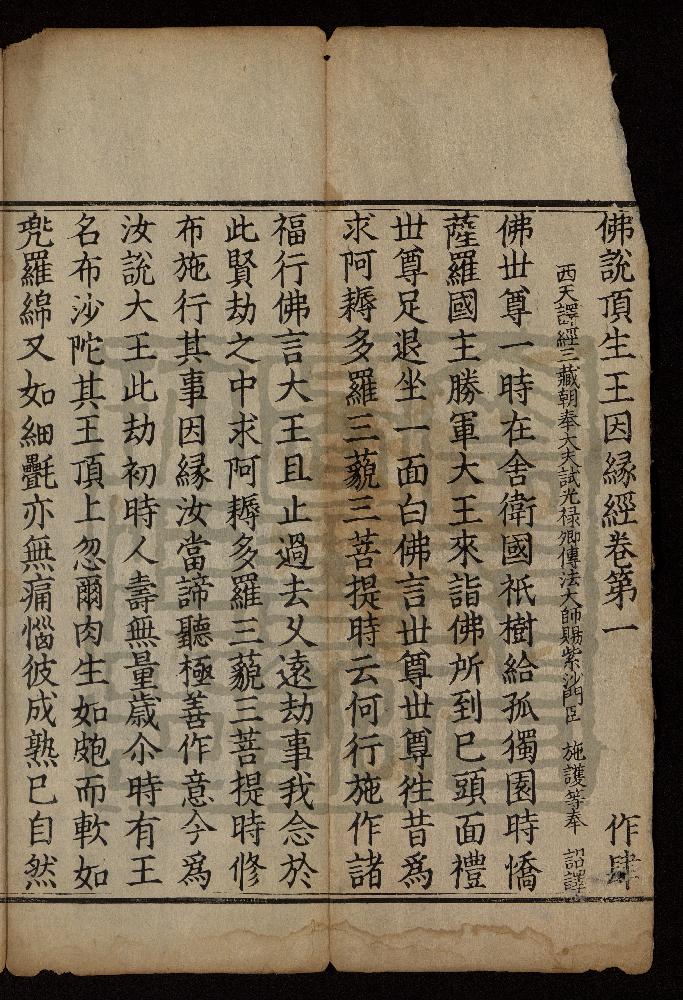 佛說頂生王因緣經卷第一 作肆
西天譯經三藏朝奉大夫試光祿卿傳法大師賜紫沙門臣 施護等奉 詔譯
佛世尊一時在舍衛國祇樹給孤獨園時憍
薩羅國主勝軍大王來詣佛所到已頭面禮
世尊足退坐一面白佛言世尊世尊徃昔為
求阿耨多羅三藐三菩提時云何行施作諸
福行佛言大王且止過去久遠劫事我念於
此賢劫之中求阿耨多羅三藐三菩提時修
布施行其事因緣汝當諦聽極善作意今為
汝說大王此劫初時人壽無量歲尒時有王
名布沙陀其王頂上忽爾肉生如皰而軟如
兠羅綿又如細㲲亦無痛惱彼成熟已自然